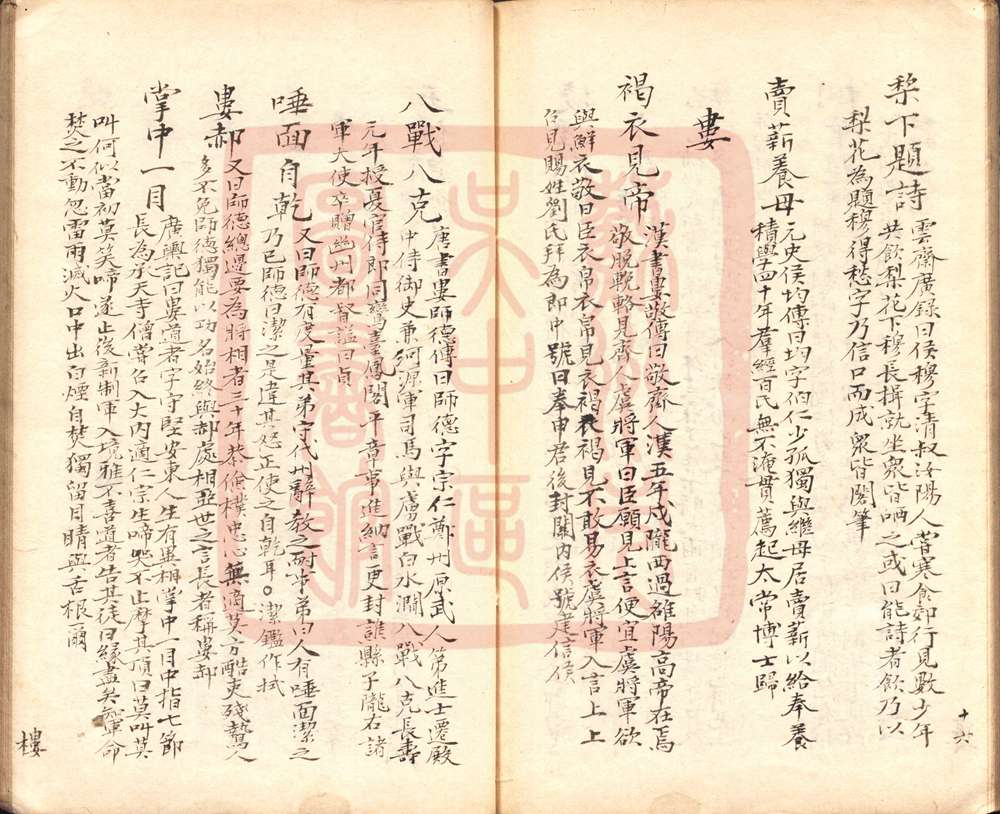 梨下題詩
雲齋廣録曰侯穆字清叔汝陽人嘗寒食郊行見數少年
共飲梨花下穆長揖就坐衆皆哂之或曰能詩者飲乃以
梨花為題穆得愁字乃信口而成衆皆閣筆
賣薪養母
元史侯均傳曰均字伯仁少孤獨與繼母居賣薪以給奉養
積學四十年羣經百氏無不淹貫薦起太常博士歸
婁
褐衣見帝
漢書婁敬傳曰敬齊人漢五年戍隴西過雒陽高帝在焉
敬脫輓輅見齊人虞將軍曰臣願見上言便宜虞將軍欲
與鮮衣敬曰臣衣帛衣帛見衣褐衣褐見不敢易衣虞將軍入言上上
召見賜姓劉氏拜為郎中號曰奉申君後封關內侯號建信侯
八戰八克
唐書婁師德傳曰師德字宗仁鄭州原武人第進士遷殿
中侍御史兼河源軍司馬與虜戰白水澗八戰八克長壽
元年授夏官侍郎同鸞臺鳳閣平章事進納言更封譙縣子隴右諸
軍大使卒贈幽州都督謚曰貞
唾面自乾
又曰師德有度量其弟守代州辭教之耐事弟曰人有唾面潔之
乃已師德曰潔之是違其怒正使之自乾耳○潔鑑作拭
婁郝
又曰師德總邊要為將相者三十年恭儉樸忠心無適莫方酷吏殘鷙人
多不免師德獨能以功名始終與郝處相亞世之言長者稱婁郝
掌中一目
廣輿記曰婁道者字守堅安東人生有異相掌中一目中指七節
長為承天寺僧嘗召入大內適仁宗生啼哭不止摩其頂曰莫叫莫
叫何似當初莫笑啼遂止後新制軍入境雅不喜道者告其徒曰緣盡矣軍命
焚之不動忽雷雨滅火口中出白煙自焚獨留目睛與舌根爾
十六
樓